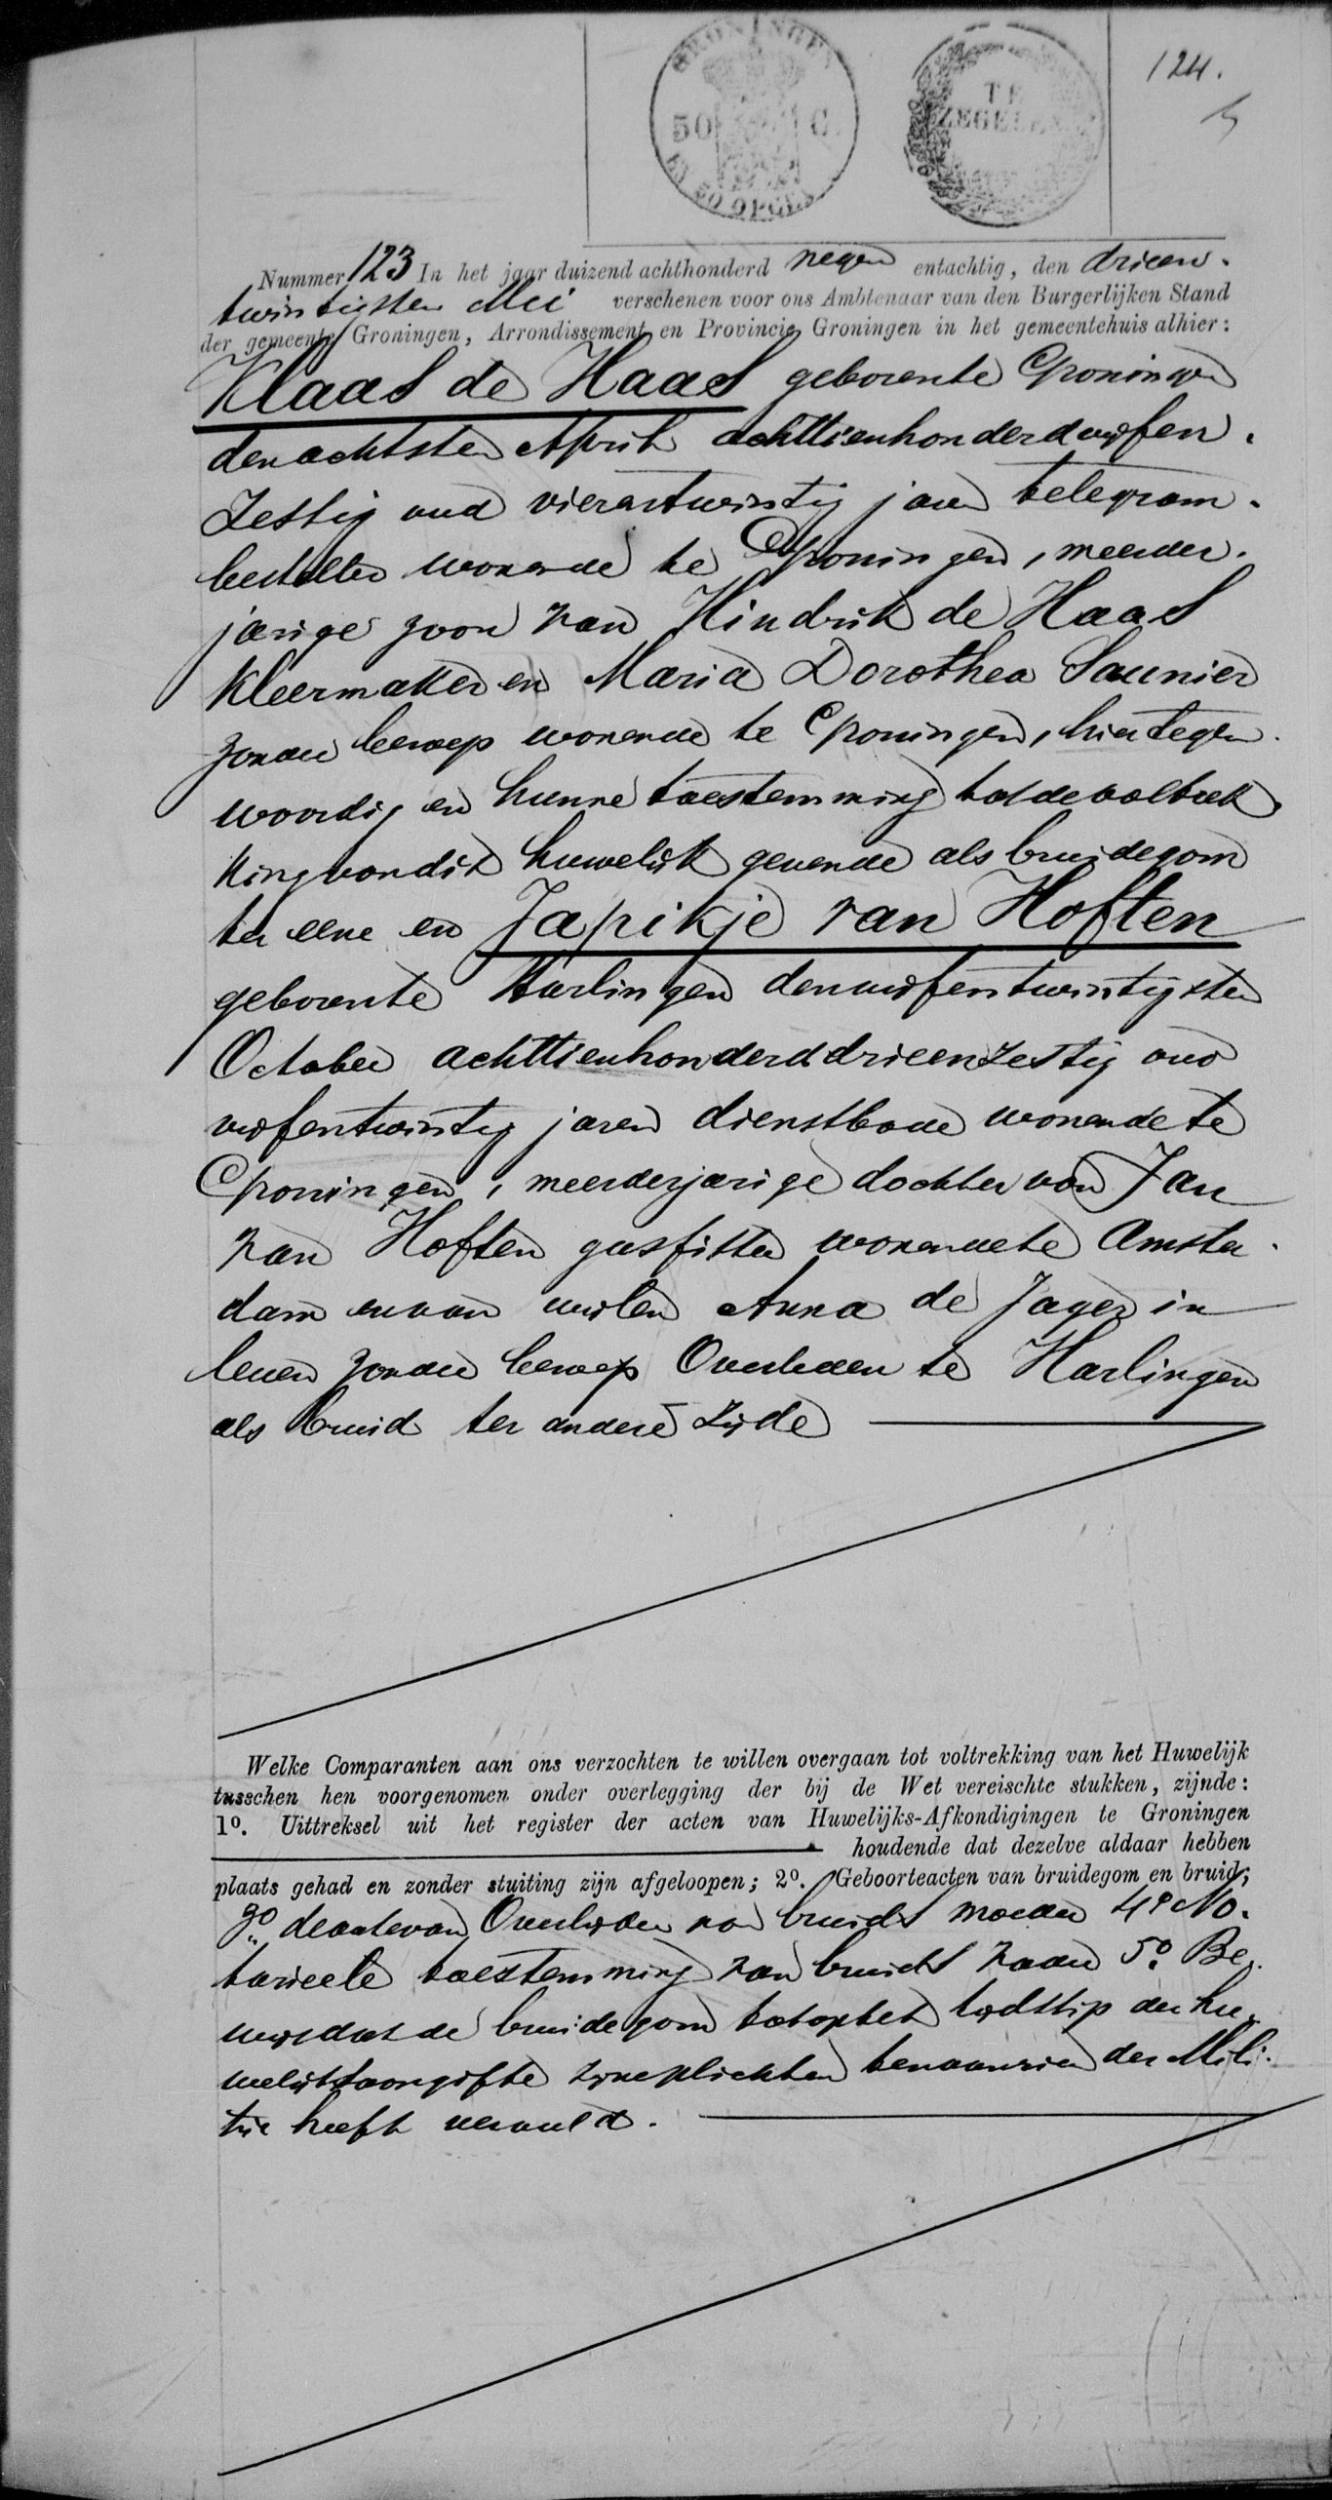 GRONINGEN
50 C.
EN 50 OPCEN
TE
ZEGELEN
124.
Nummer 123 In het jaar duizend achthonderd negen entachtig, den drieen-
twintigsten Mei verschenen voor ons Ambtenaar van den Burgerlijken Stand
der gemeente Groningen, Arrondissement en Provincie Groningen in het gemeentehuis alhier:
Klaas de Haas geboren te Groningen
den achtsten April achttienhonderd vijfen-
zestig oud vierentwintig jaren telegram-
besteller wonende te Groningen, meerder-
jarige zoon van Hindrik de Haas
kleermaker en Maria Dorothea Saunier
zonder beroep wonende te Groningen, hier tegen-
woordig en hunne toestemming tot de voltrek-
king van dit huwelijk gevende als bruidegom
ter eene en Japikje van Hoften
geboren te Harlingen den vijfentwintigsten
October achttienhonderd drieenzestig oud
vijfentwintig jaren dienstbode wonende te
Groningen, meerderjarige dochter van Jan
van Hoften gasfitter wonende te Amster-
dam en van wijlen Anna de Jager in
leven zonder beroep Overleden te Harlingen
als bruid ter andere zijde
Welke Comparanten aan ons verzochten te willen overgaan tot voltrekking van het Huwelijk
tusschen hen voorgenomen onder overlegging der bij de Wet vereischte stukken, zijnde:
1o. Uittreksel uit het register der acten van Huwelijks-Afkondigingen te Groningen
houdende dat dezelve aldaar hebben
plaats gehad en zonder stuiting zijn afgeloopen; 2o. Geboorteacten van bruidegom en bruid;
3o de acte van Overlijden van bruids moeder 4o No-
tarieele toestemming van bruids vader 5o Be-
wijs dat de bruidegom tot op het tijdstip der hu-
welijksaangifte zijne plichten ten aanzien der Mili-
tie heeft vervuld.